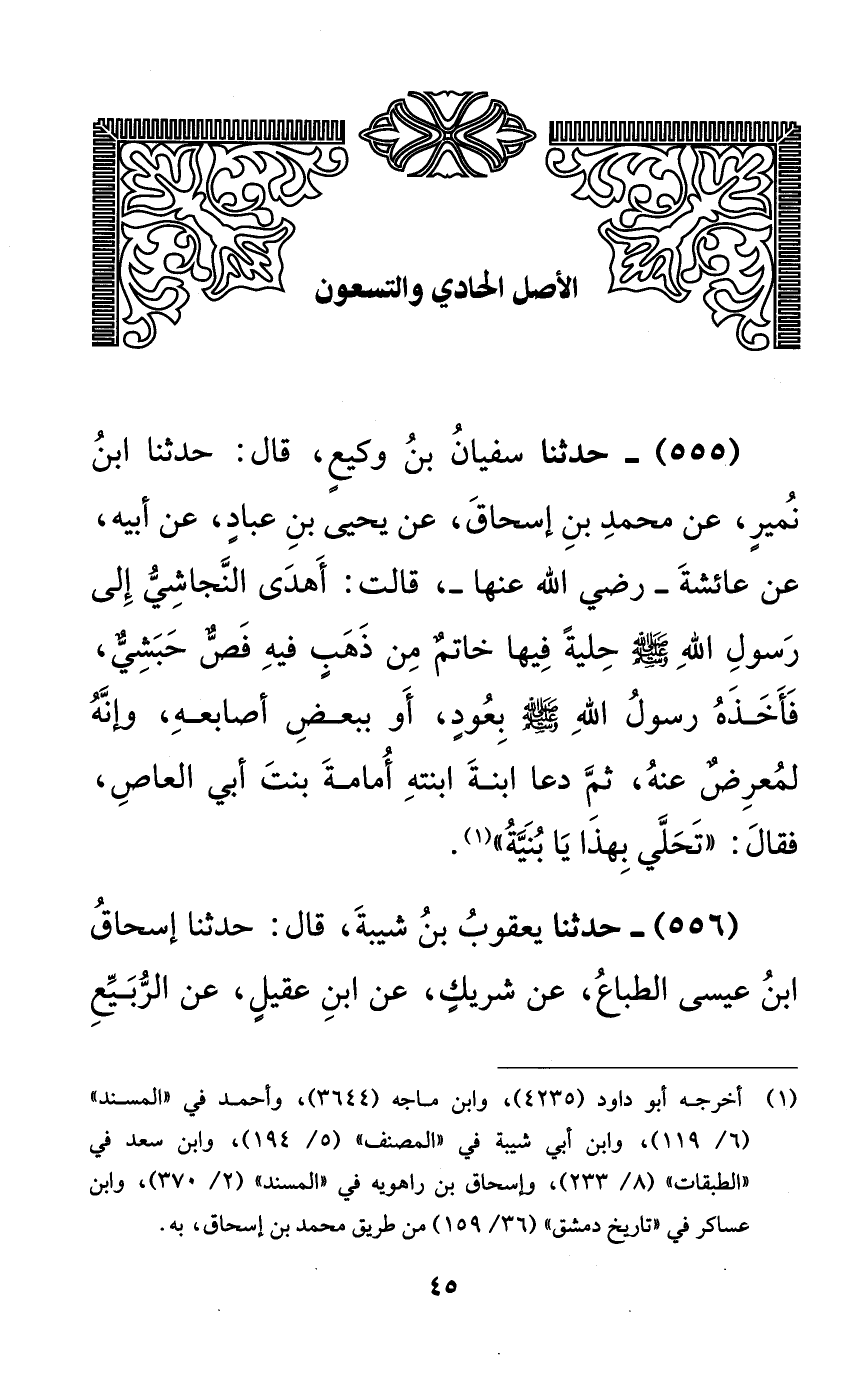 الأصل الحادي والتسعون
(٥٥٥) ـ حدثنا سفيانُ بنُ وكيعٍ، قال: حدثنا ابنُ
نُميرٍ، عن محمدِ بنِ إسحاقَ، عن يحيى بنِ عبادٍ، عن أبيه،
عن عائشةَ ـ رضي الله عنها ـ، قالت: أَهدَى النَّجاشِيُّ إِلى
رَسولِ اللهِ ﷺ حِليةً فِيها خاتمٌ مِن ذَهَبٍ فيهِ فَصٌّ حَبَشِيٌّ،
فَأَخَذَهُ رسولُ اللهِ ﷺ بِعُودٍ، أَو ببعضِ أصابعهِ، وإنَّهُ
لمُعرِضٌ عنهُ، ثمَّ دعا ابنةَ ابنتهِ أُمامةَ بنتَ أبي العاصِ،
فقالَ: «تَحَلَّي بِهذَا يَا بُنَيَّةُ»(١).
(٥٥٦) ـ حدثنا يعقوبُ بنُ شيبةَ، قال: حدثنا إسحاقُ
ابنُ عيسى الطباعُ، عن شريكٍ، عن ابنِ عقيلٍ، عن الرُّبَيِّعِ
(١) أخرجه أبو داود (٤٢٣٥)، وابن ماجه (٣٦٤٤)، وأحمد في «المسند»
(٦/ ١١٩)، وابن أبي شيبة في «المصنف» (٥/ ١٩٤)، وابن سعد في
«الطبقات» (٨/ ٢٣٣)، وإسحاق بن راهويه في «المسند» (٢/ ٣٧٠)، وابن
عساكر في «تاريخ دمشق» (٣٦/ ١٥٩) من طريق محمد بن إسحاق، به.
٤٥